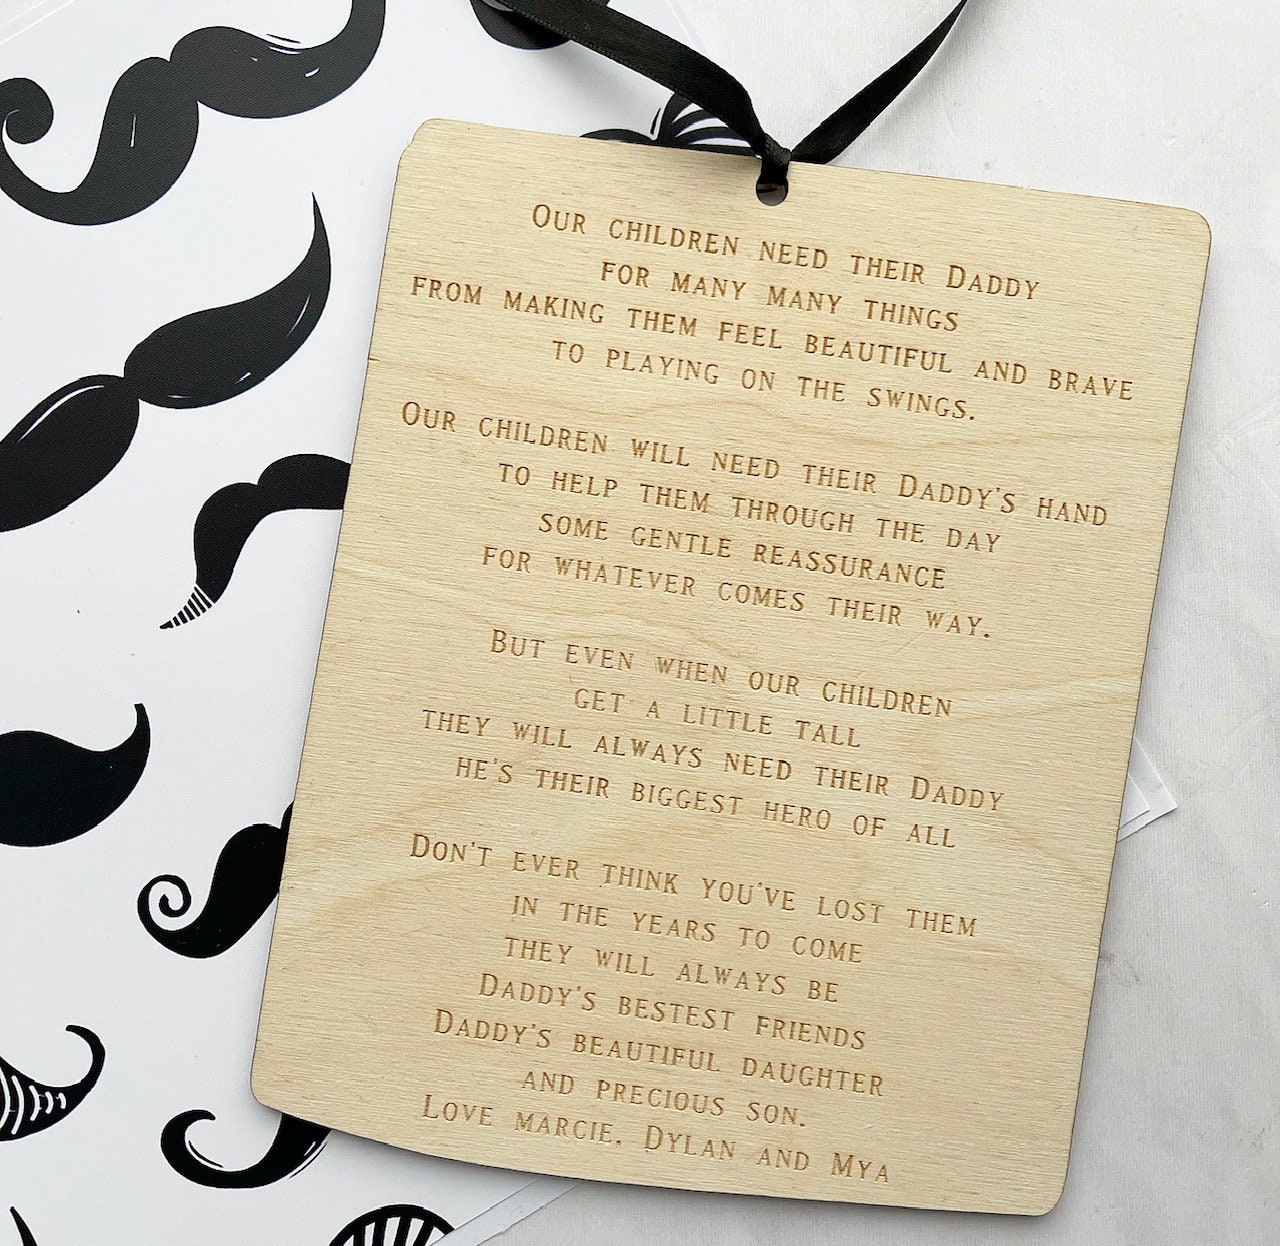 Our children need their Daddy
for many many things
from making them feel beautiful and brave
to playing on the swings.
Our children will need their Daddy's hand
to help them through the day
some gentle reassurance
for whatever comes their way.
But even when our children
get a little tall
they will always need their Daddy
he's their biggest hero of all
Don't ever think you've lost them
in the years to come
they will always be
Daddy's bestest friends
Daddy's beautiful daughter
and precious son.
Love marcie, Dylan and Mya